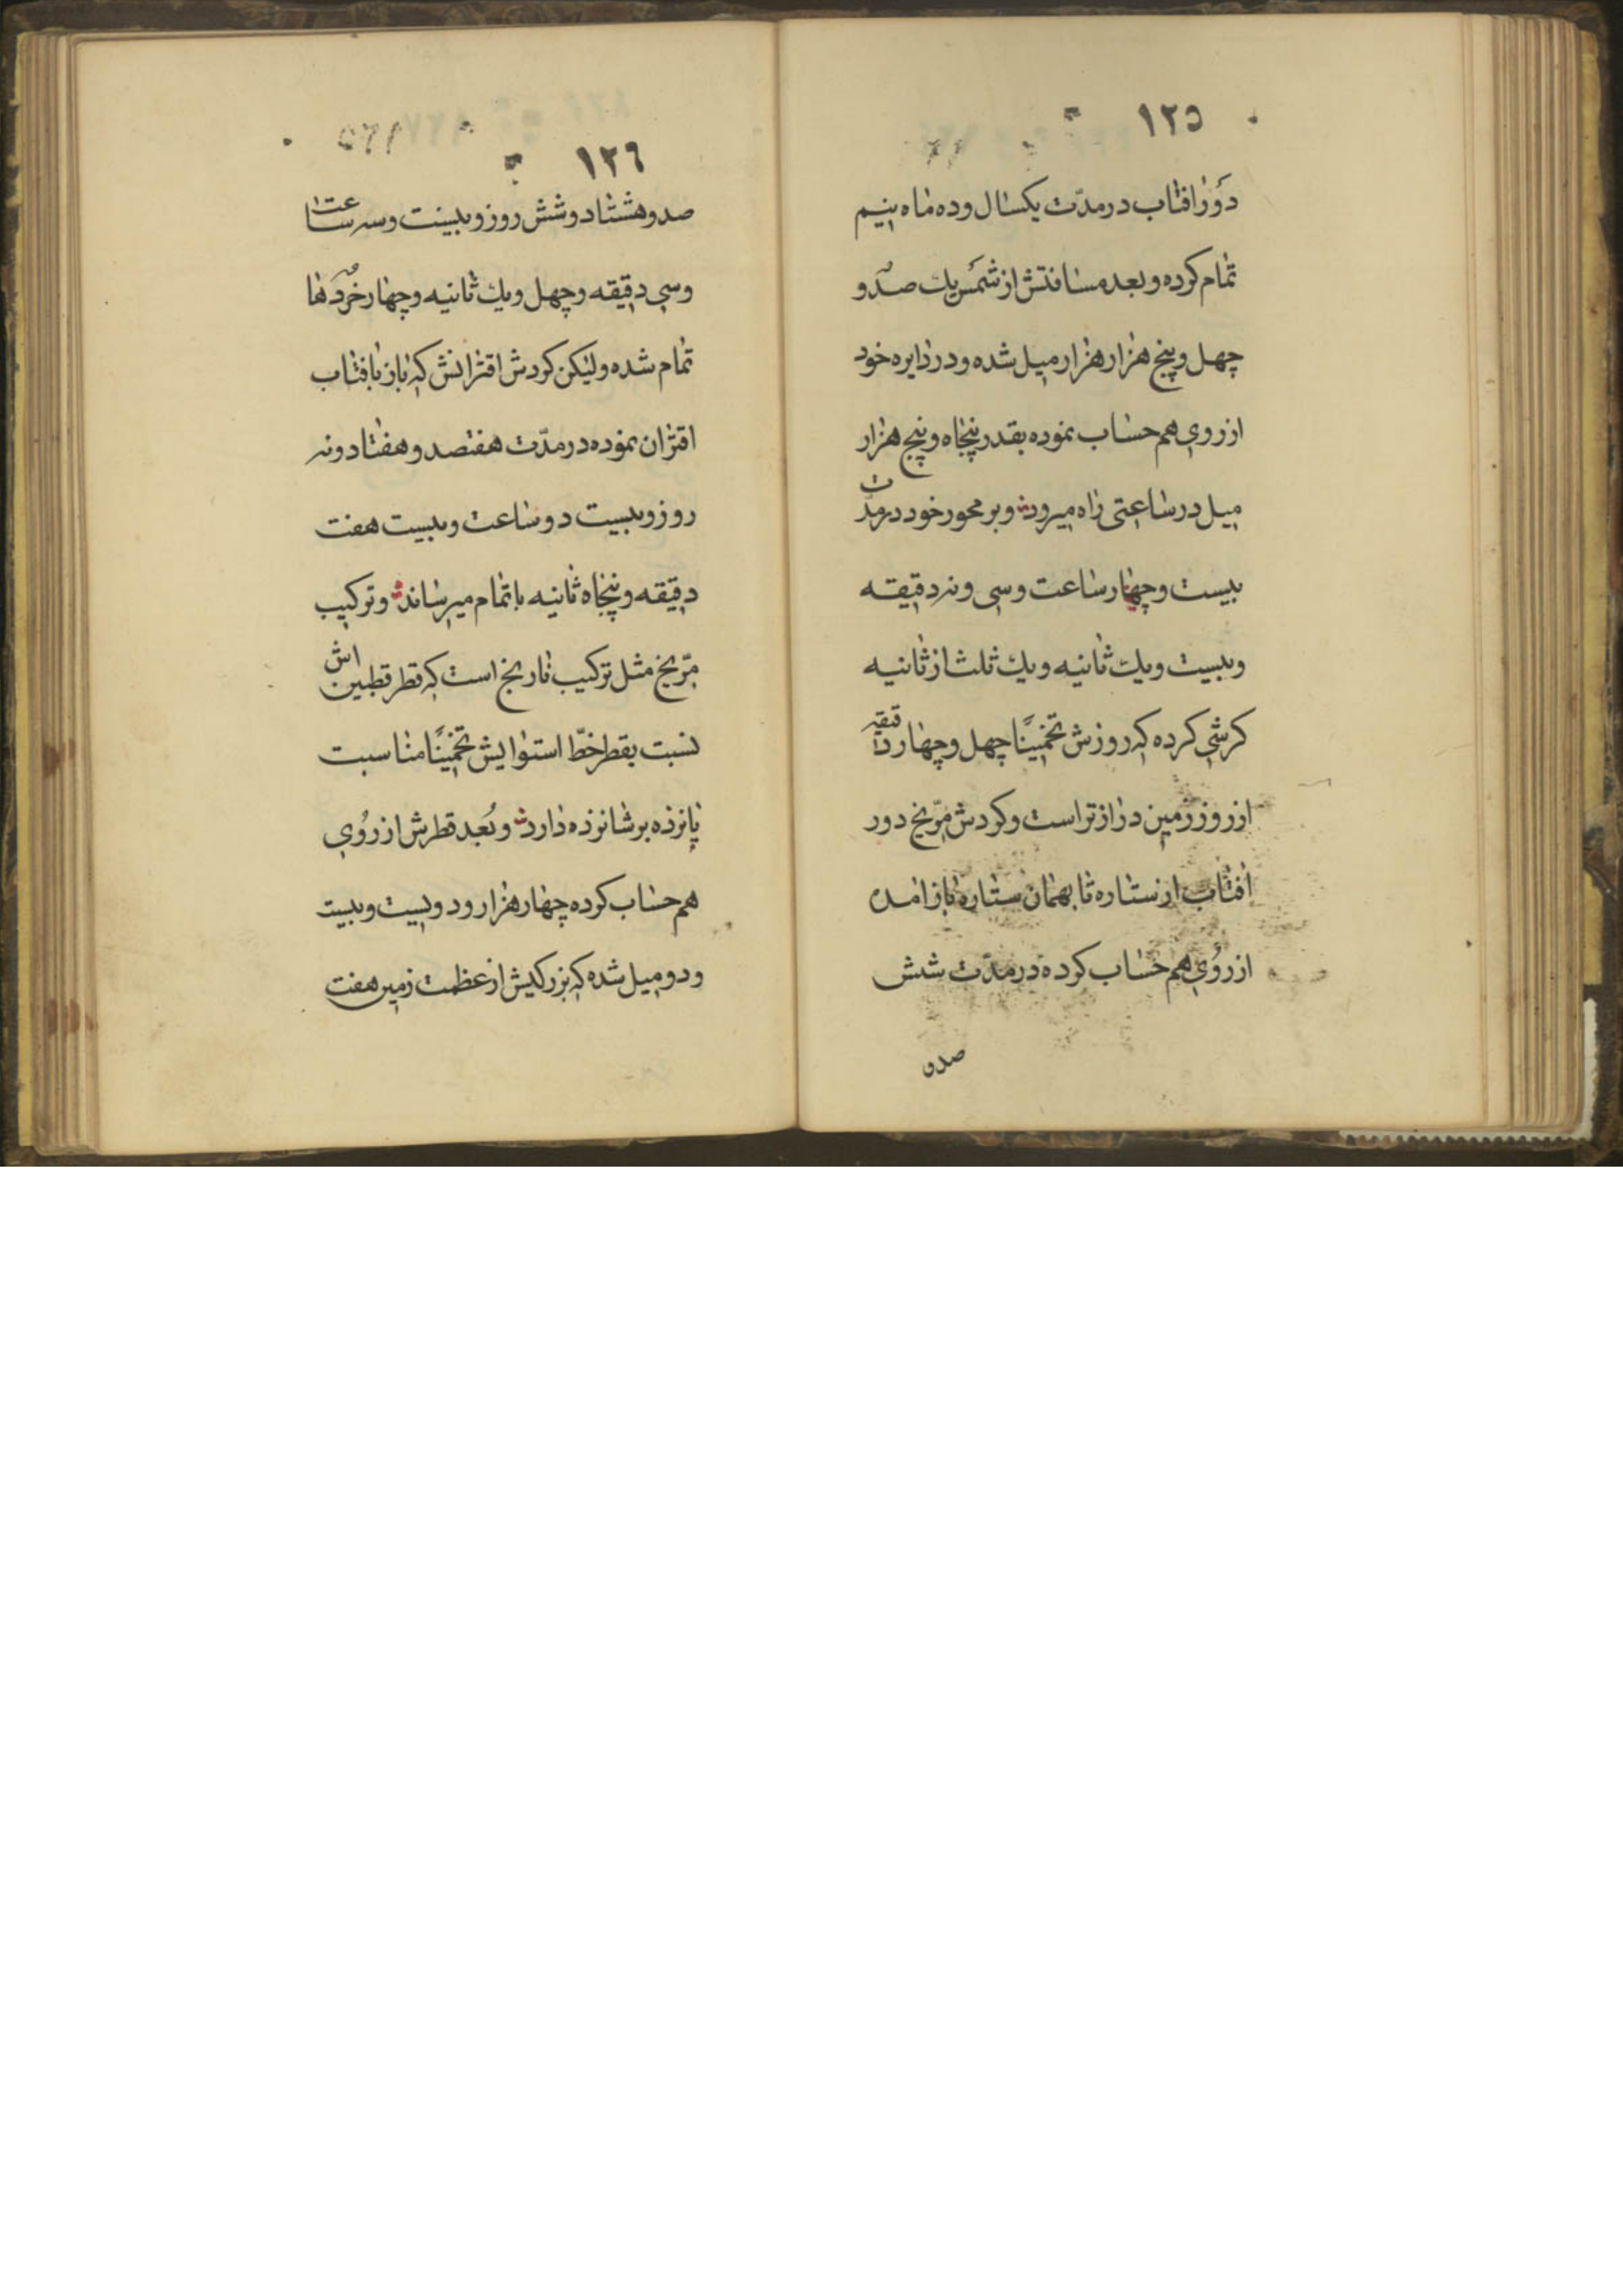 ١٢٥
دَوْر افتاب در مدّت یکسال و ده ماه بنیم
تمام کرده و بعد مسافتش از شمس یك صد و
چهل و پنج هزار هزار میل شده و در دایره خود
از روی هم حساب نموده بقدر پنجاه و پنج هزار
میل در ساعتی راه میرود و بر محور خود در مدّت
بیست و چهار ساعت و سی و نه دقیقه
و بیست و یك ثانیه و یك ثلث از ثانیه
کرشی کرده که روزش تخمینًا چهل و چهار دقیقه
از روز زمین دراز تر است و کردش مرّیخ دور
افتاب از ستاره تا بهمان ستاره باز امدن
از رُوی هم حساب کرده در مدّت شش
صدو
١٢٦
صد و هشتاد و شش روز و بیست و سه ساعت
و سی دقیقه و چهل و یك ثانیه و چهار خُردها
تمام شده ولیکن کردش اقترانش که باز بافتاب
اقتران نموده در مدّت هفتصد و هفتاد و نه
روز و بیست دو ساعت و بیست هفت
دقیقه و پنجاه ثانیه باتمام میرساند و ترکیب
مرّیخ مثل ترکیب نارنج است که قطر قطبین اش
نسبت بقطر خطّ استوایش تخمینًا مناسبت
پانزده بر شانزده دارد و بُعد قطرش از رُوی
هم حساب کرده چهار هزار و دویست و بیست
و دو میل شده که بزرکیش از عظمت زمین هفت